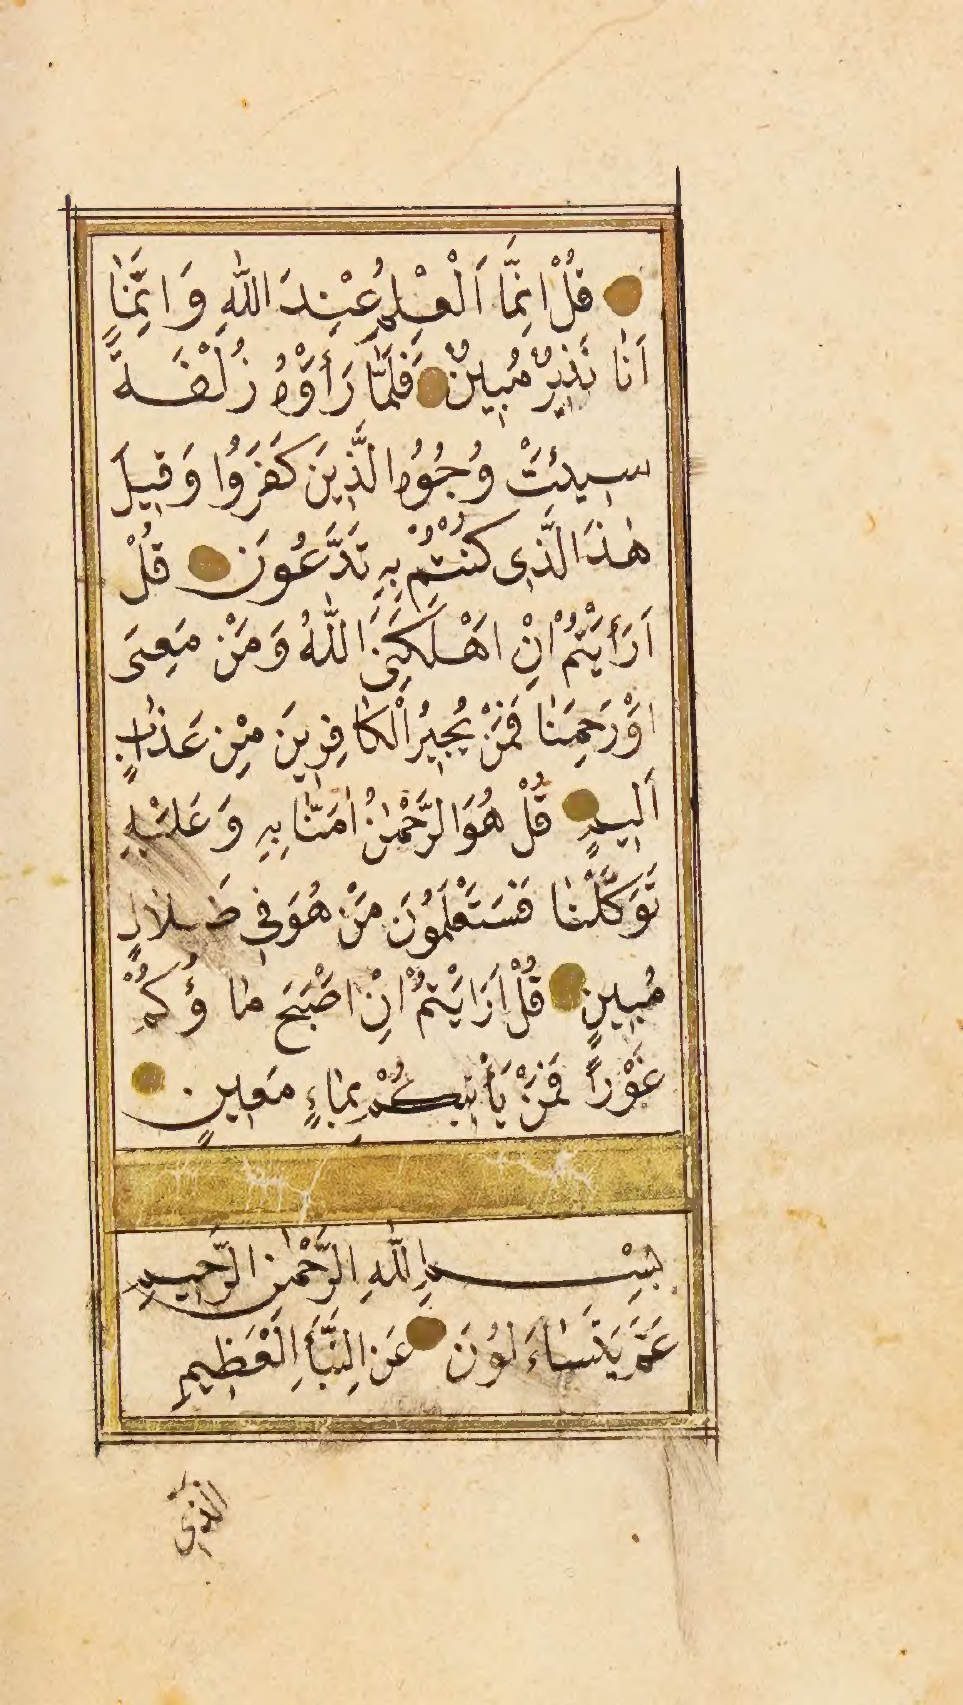 قُلْ اِنَّمَا اَلْعِلْمُ عِنْدَ اللّٰهِ وَ اِنَّمٰٓا
اَنَا نَذِيرٌ مُبِينٌ فَلَمَّا رَأَوْهُ زُلْفَةً
سِيئَتْ وُجُوهُ الَّذِينَ كَفَرُوا وَقِيلَ
هٰذَا الَّذِى كُنْتُمْ بِهِ تَدَّعُونَ قُلْ
اَرَأَيْتُمْ اِنْ اَهْلَكَنِىَ اللّٰهُ وَمَنْ مَعِىَ
اَوْ رَحِمَنٰا فَمَنْ يُجِيرُ الْكٰافِرِينَ مِنْ عَذٰابٍ
اَلِيمٍ قُلْ هُوَ الرَّحْمٰنُ اٰمَنّٰا بِهِ وَ عَلَيْهِ
تَوَكَّلْنٰا فَسَتَعْلَمُونَ مَنْ هُوَ فِى ضَلٰالٍ
مُبِينٍ قُلْ اَرَاَيْتُمْ اِنْ اَصْبَحَ مٰاؤُكُمْ
غَوْراً فَمَنْ يَأْتِيكُمْ بِمٰاءٍ مَعِينٍ
بِسْمِ اللّٰهِ الرَّحْمٰنِ الرَّحِيمِ
عَمَّ يَتَسٰاءَلُونَ عَنِ النَّبَأِ الْعَظِيمِ
الَّذِى